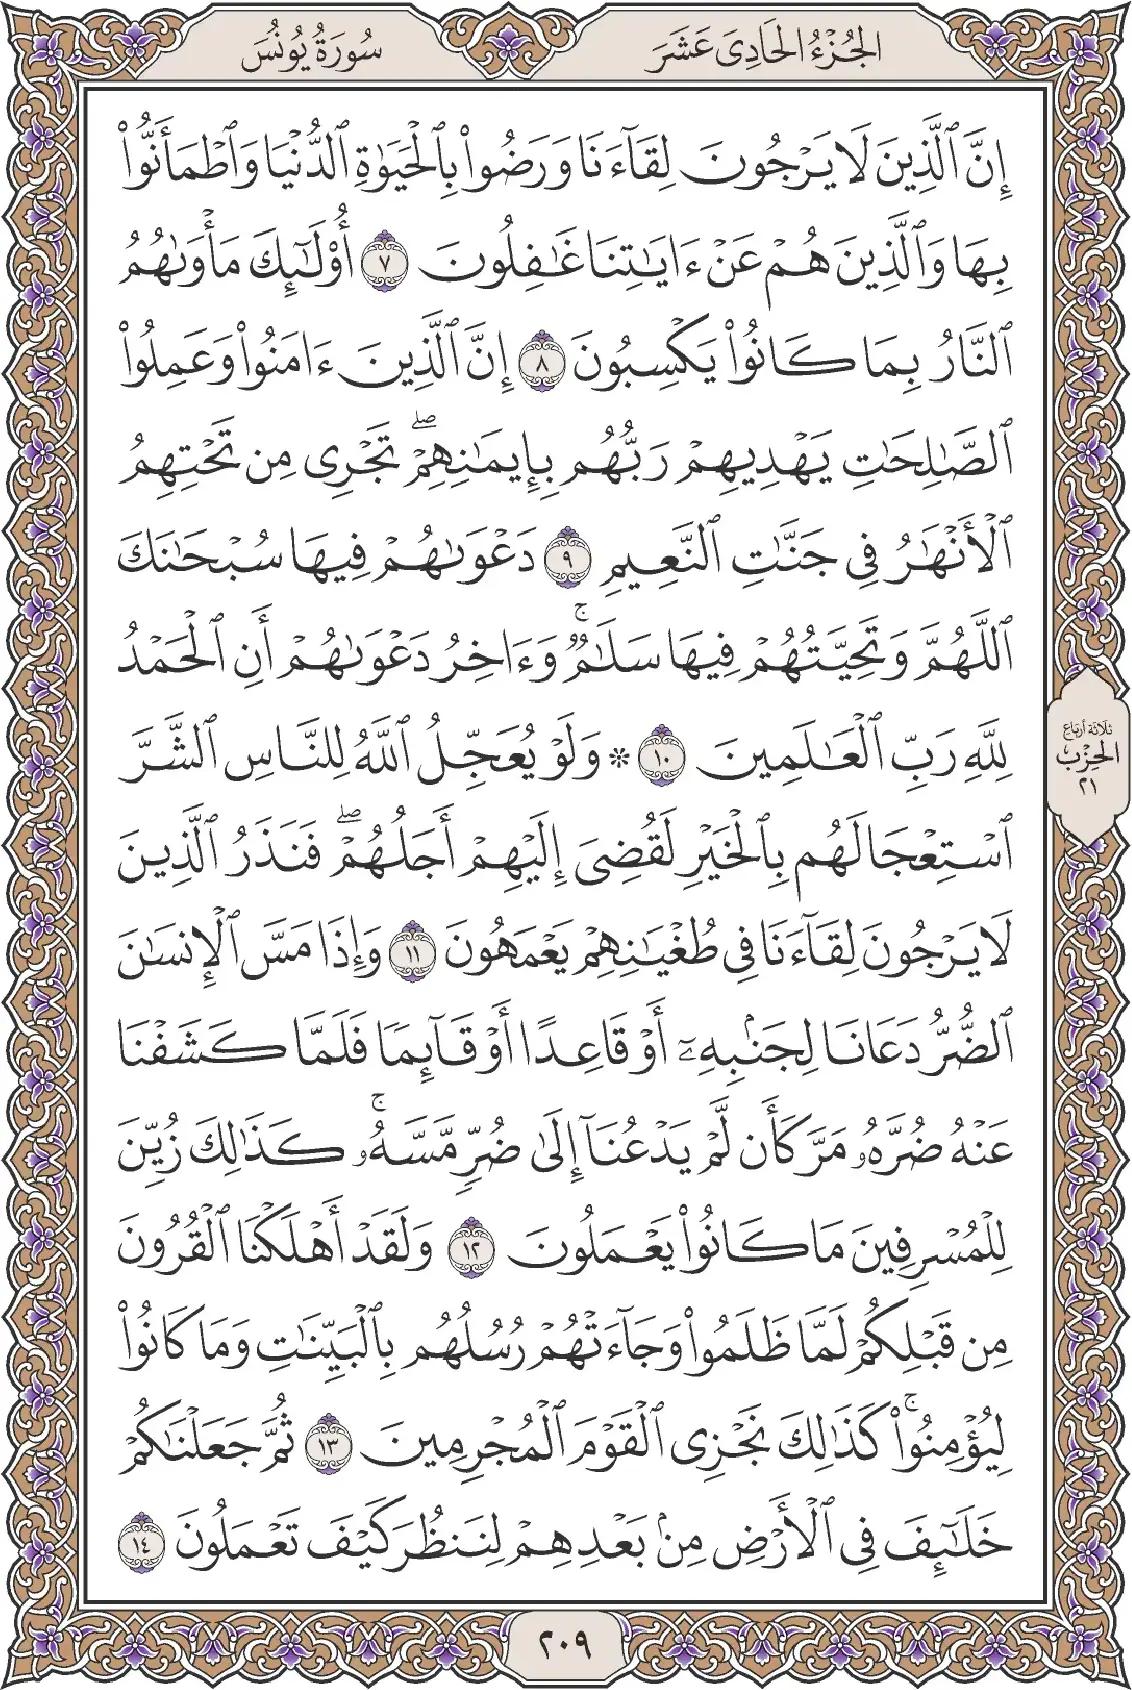 الجُزْءُ الحَادِىَ عَشَرَ
سُورَةُ يُونُسَ
إِنَّ ٱلَّذِينَ لَا يَرْجُونَ لِقَآءَنَا وَرَضُوا۟ بِٱلْحَيَوٰةِ ٱلدُّنْيَا وَٱطْمَأَنُّوا۟
بِهَا وَٱلَّذِينَ هُمْ عَنْ ءَايَـٰتِنَا غَـٰفِلُونَ ٧ أُو۟لَـٰٓئِكَ مَأْوَىٰهُمُ
ٱلنَّارُ بِمَا كَانُوا۟ يَكْسِبُونَ ٨ إِنَّ ٱلَّذِينَ ءَامَنُوا۟ وَعَمِلُوا۟
ٱلصَّـٰلِحَـٰتِ يَهْدِيهِمْ رَبُّهُم بِإِيمَـٰنِهِمْ ۖ تَجْرِى مِن تَحْتِهِمُ
ٱلْأَنْهَـٰرُ فِى جَنَّـٰتِ ٱلنَّعِيمِ ٩ دَعْوَىٰهُمْ فِيهَا سُبْحَـٰنَكَ
ٱللَّهُمَّ وَتَحِيَّتُهُمْ فِيهَا سَلَـٰمٌ ۚ وَءَاخِرُ دَعْوَىٰهُمْ أَنِ ٱلْحَمْدُ
لِلَّهِ رَبِّ ٱلْعَـٰلَمِينَ ١٠ ۞ وَلَوْ يُعَجِّلُ ٱللَّهُ لِلنَّاسِ ٱلشَّرَّ
ٱسْتِعْجَالَهُم بِٱلْخَيْرِ لَقُضِىَ إِلَيْهِمْ أَجَلُهُمْ ۖ فَنَذَرُ ٱلَّذِينَ
لَا يَرْجُونَ لِقَآءَنَا فِى طُغْيَـٰنِهِمْ يَعْمَهُونَ ١١ وَإِذَا مَسَّ ٱلْإِنسَـٰنَ
ٱلضُّرُّ دَعَانَا لِجَنۢبِهِۦٓ أَوْ قَاعِدًا أَوْ قَآئِمًا فَلَمَّا كَشَفْنَا
عَنْهُ ضُرَّهُۥ مَرَّ كَأَن لَّمْ يَدْعُنَآ إِلَىٰ ضُرٍّ مَّسَّهُۥ ۚ كَذَٰلِكَ زُيِّنَ
لِلْمُسْرِفِينَ مَا كَانُوا۟ يَعْمَلُونَ ١٢ وَلَقَدْ أَهْلَكْنَا ٱلْقُرُونَ
مِن قَبْلِكُمْ لَمَّا ظَلَمُوا۟ وَجَآءَتْهُمْ رُسُلُهُم بِٱلْبَيِّنَـٰتِ وَمَا كَانُوا۟
لِيُؤْمِنُوا۟ ۚ كَذَٰلِكَ نَجْزِى ٱلْقَوْمَ ٱلْمُجْرِمِينَ ١٣ ثُمَّ جَعَلْنَـٰكُمْ
خَلَـٰٓئِفَ فِى ٱلْأَرْضِ مِنۢ بَعْدِهِمْ لِنَنظُرَ كَيْفَ تَعْمَلُونَ ١٤
ثلاثة أرباع
الحِزْب
٢١
٢٠٩